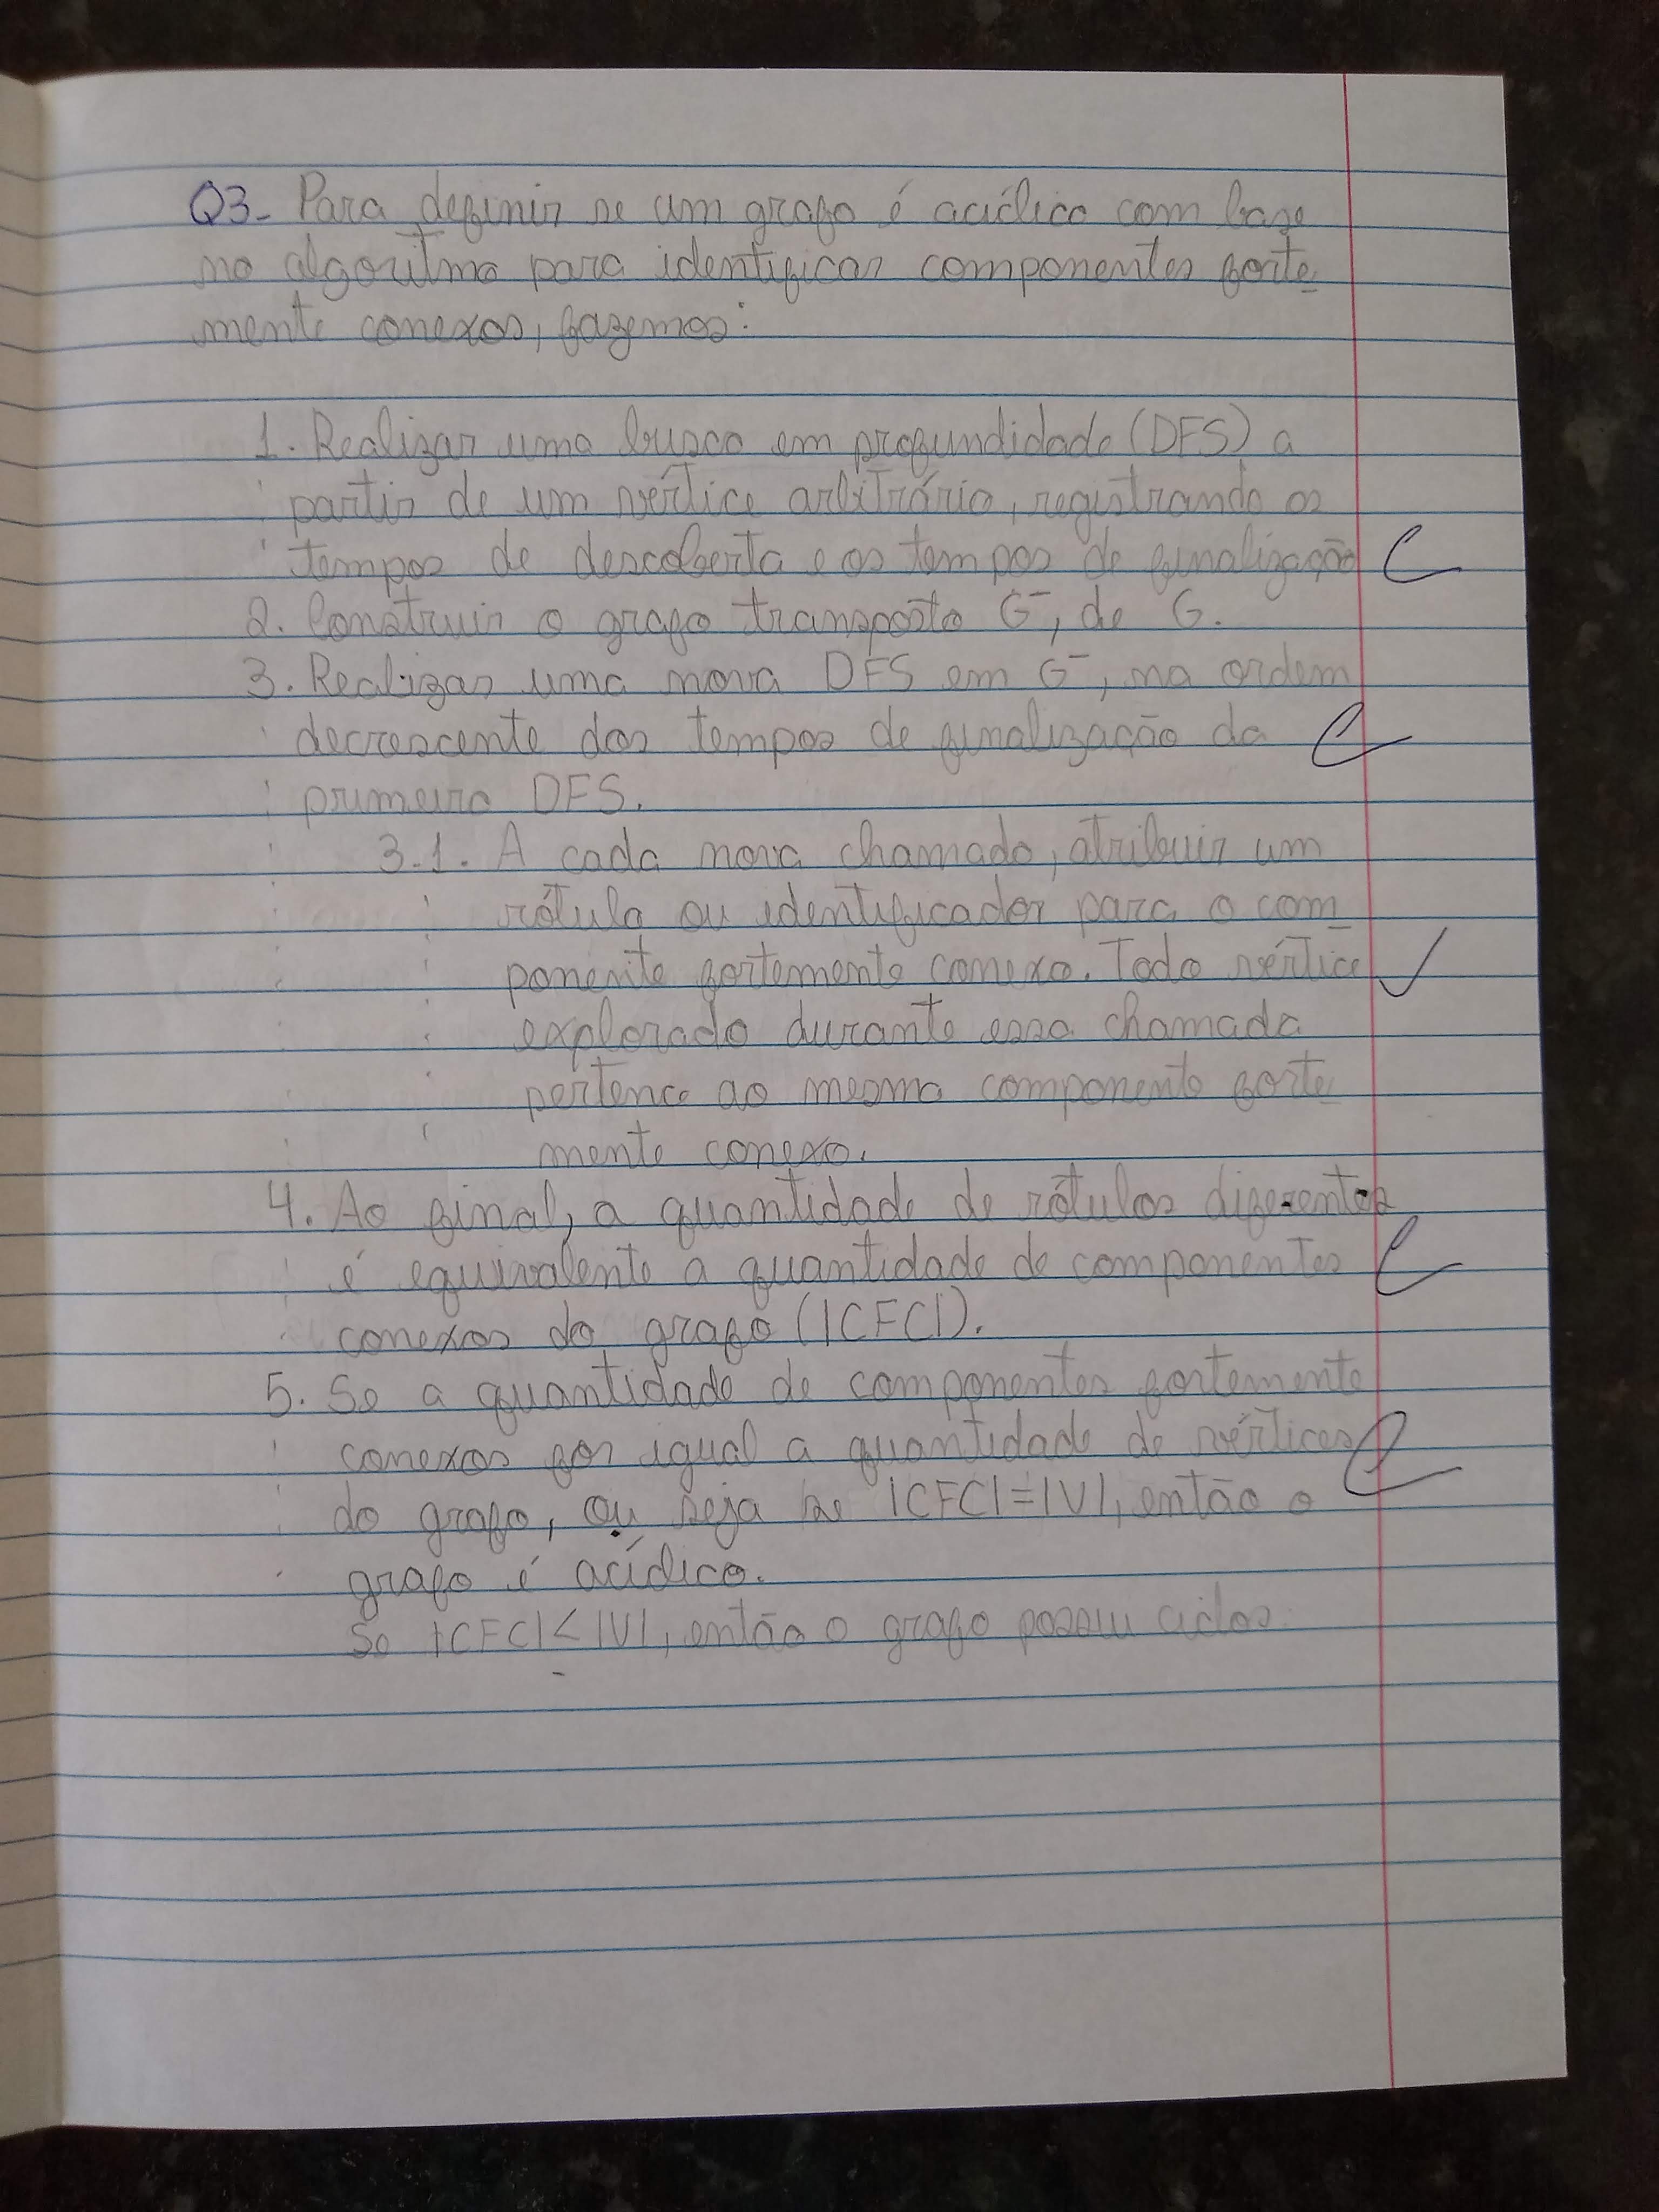 Q3- Para definir se um grafo é acíclico com base
no algoritmo para identificar componentes forte
mente conexos, fazemos:
1. Realizar uma busca em profundidade (DFS) a
partir de um vértice arbitrário, registrando os
tempos de descoberta e os tempos de finalização
2. Construir o grafo transposto G⁻, de G.
3. Realizar uma nova DFS em G⁻, na ordem
decrescente dos tempos de finalização da
primeira DFS.
3.1. A cada nova chamada, atribuir um
rótulo ou identificador para o com
ponente fortemente conexo. Todo vértice
explorado durante essa chamada
pertence ao mesmo componente forte
mente conexo.
4. Ao final, a quantidade de rótulos diferentes
é equivalente a quantidade de componentes
conexos do grafo (|CFC|).
5. Se a quantidade de componentes fortemente
conexos for igual a quantidade de vértices
do grafo, ou seja se |CFC|=|V|, então o
grafo é acíclico.
Se |CFC|<|V|, então o grafo possui ciclos.